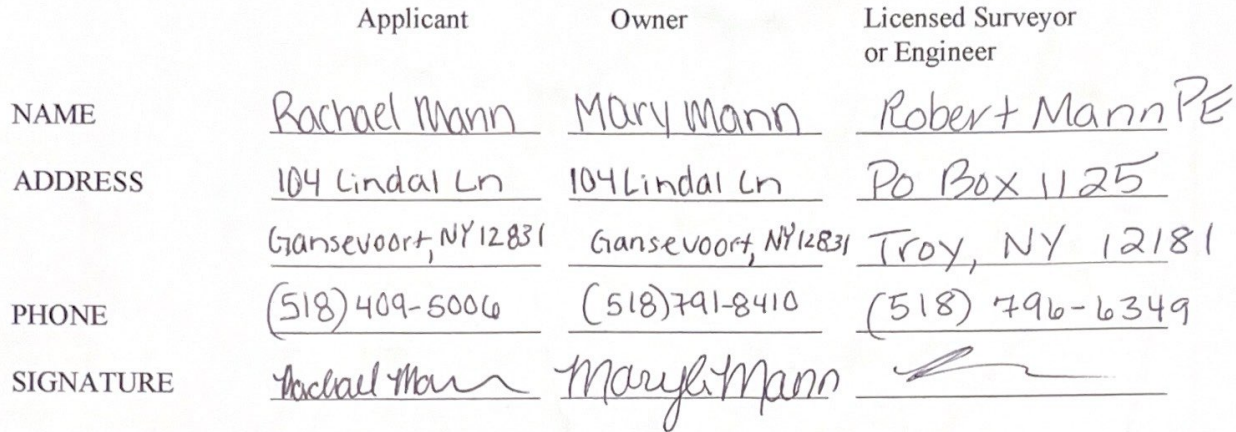 Applicant Owner Licensed Surveyor
or Engineer
NAME Rachael Mann Mary Mann Robert Mann PE
ADDRESS 104 Lindal Ln 104 Lindal Ln Po Box 1125
Gansevoort, NY 12831 Gansevoort, NY 12831 Troy, NY 12181
PHONE (518) 409-5006 (518) 791-8410 (518) 796-6349
SIGNATURE Rachael Mann Mary Mann